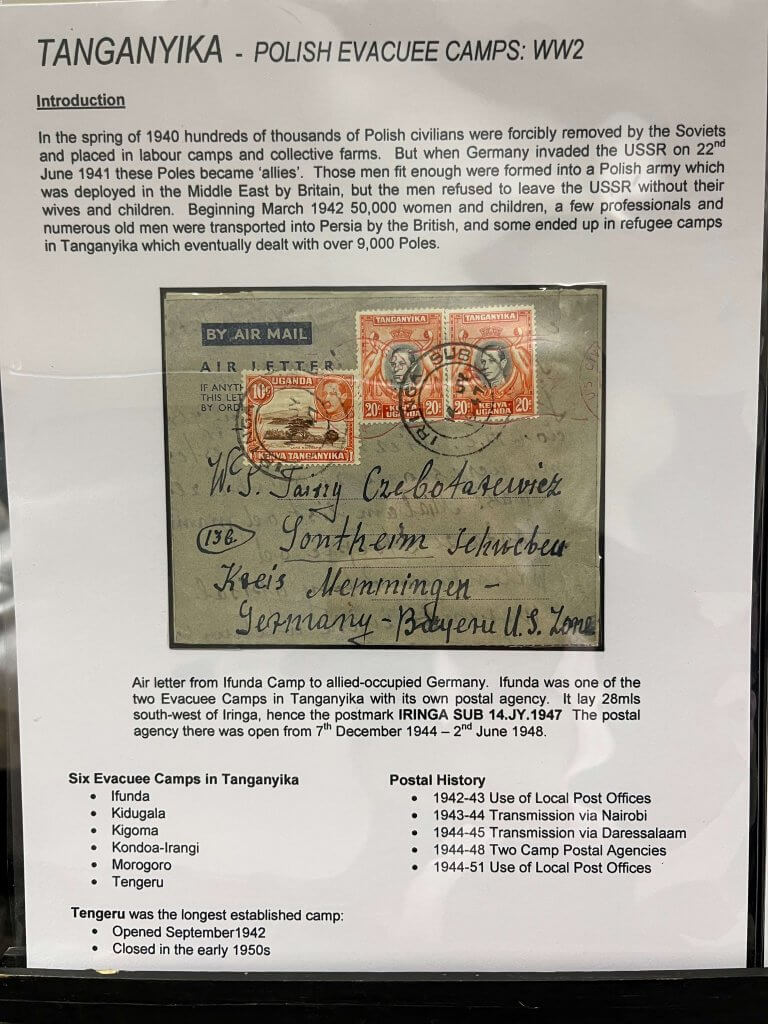 TANGANYIKA - POLISH EVACUEE CAMPS: WW2
Introduction
In the spring of 1940 hundreds of thousands of Polish civilians were forcibly removed by the Soviets
and placed in labour camps and collective farms. But when Germany invaded the USSR on 22nd
June 1941 these Poles became 'allies'. Those men fit enough were formed into a Polish army which
was deployed in the Middle East by Britain, but the men refused to leave the USSR without their
wives and children. Beginning March 1942 50,000 women and children, a few professionals and
numerous old men were transported into Persia by the British, and some ended up in refugee camps
in Tanganyika which eventually dealt with over 9,000 Poles.
BY AIR MAIL
AIR LETTER
IF ANYTH
THIS LET
BY ORD
UGANDA
10c
KENYA TANGANYIKA
TANGANYIKA
20c KENYA- UGANDA 20c
TANGANYIKA
20c KENYA- UGANDA 20c
IRINGA SUB
IRINGA
W. S. Czebotarewicz
(136.) Sontheim Schweben
Kreis Memmingen -
Germany - Bayern U.S. Zone
Air letter from Ifunda Camp to allied-occupied Germany. Ifunda was one of the
two Evacuee Camps in Tanganyika with its own postal agency. It lay 28mls
south-west of Iringa, hence the postmark IRINGA SUB 14.JY.1947 The postal
agency there was open from 7th December 1944 – 2nd June 1948.
Six Evacuee Camps in Tanganyika
• Ifunda
• Kidugala
• Kigoma
• Kondoa-Irangi
• Morogoro
• Tengeru
Postal History
• 1942-43 Use of Local Post Offices
• 1943-44 Transmission via Nairobi
• 1944-45 Transmission via Daressalaam
• 1944-48 Two Camp Postal Agencies
• 1944-51 Use of Local Post Offices
Tengeru was the longest established camp:
• Opened September1942
• Closed in the early 1950s